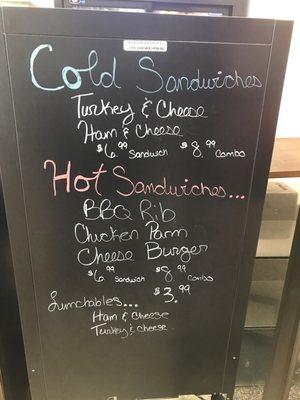 Cold Sandwiches
Turkey & Cheese
Ham & Cheese
$6.99 Sandwich $8.99 Combo
Hot Sandwiches...
BBQ Rib
Chicken Parm
Cheese Burger
$6.99 Sandwich $8.99 Combo
Lunchables... $3.99
Ham & Cheese
Turkey & Cheese